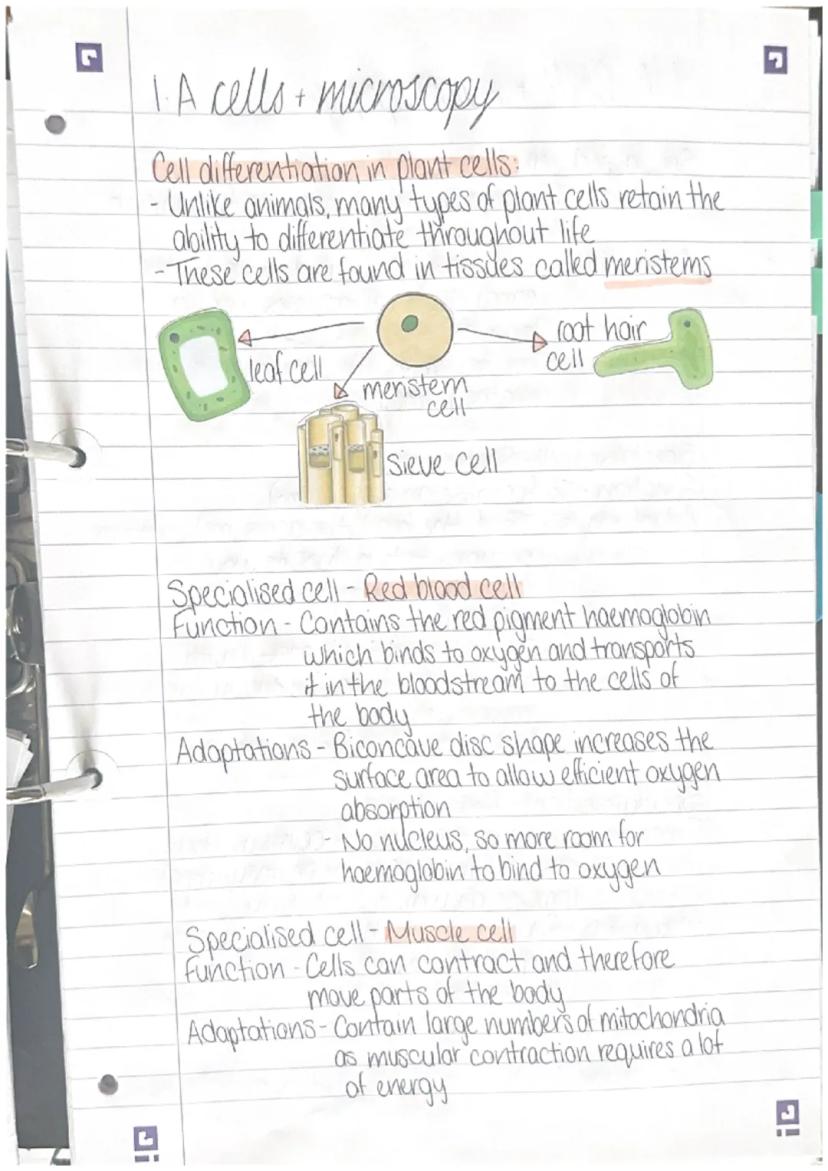 1.A cells + microscopy
Cell differentiation in plant cells:
- Unlike animals, many types of plant cells retain the
ability to differentiate throughout life
- These cells are found in tissues called meristems
root hair
cell
leaf cell
meristem
cell
sieve cell
Specialised cell - Red blood cell
Function - Contains the red pigment haemoglobin
which binds to oxygen and transports
it in the bloodstream to the cells of
the body
Adaptations - Biconcave disc shape increases the
surface area to allow efficient oxygen
absorption
- No nucleus, so more room for
haemoglobin to bind to oxygen
Specialised cell - Muscle cell
Function - Cells can contract and therefore
move parts of the body
Adaptations - Contain large numbers of mitochondria
as muscular contraction requires a lot
of energy